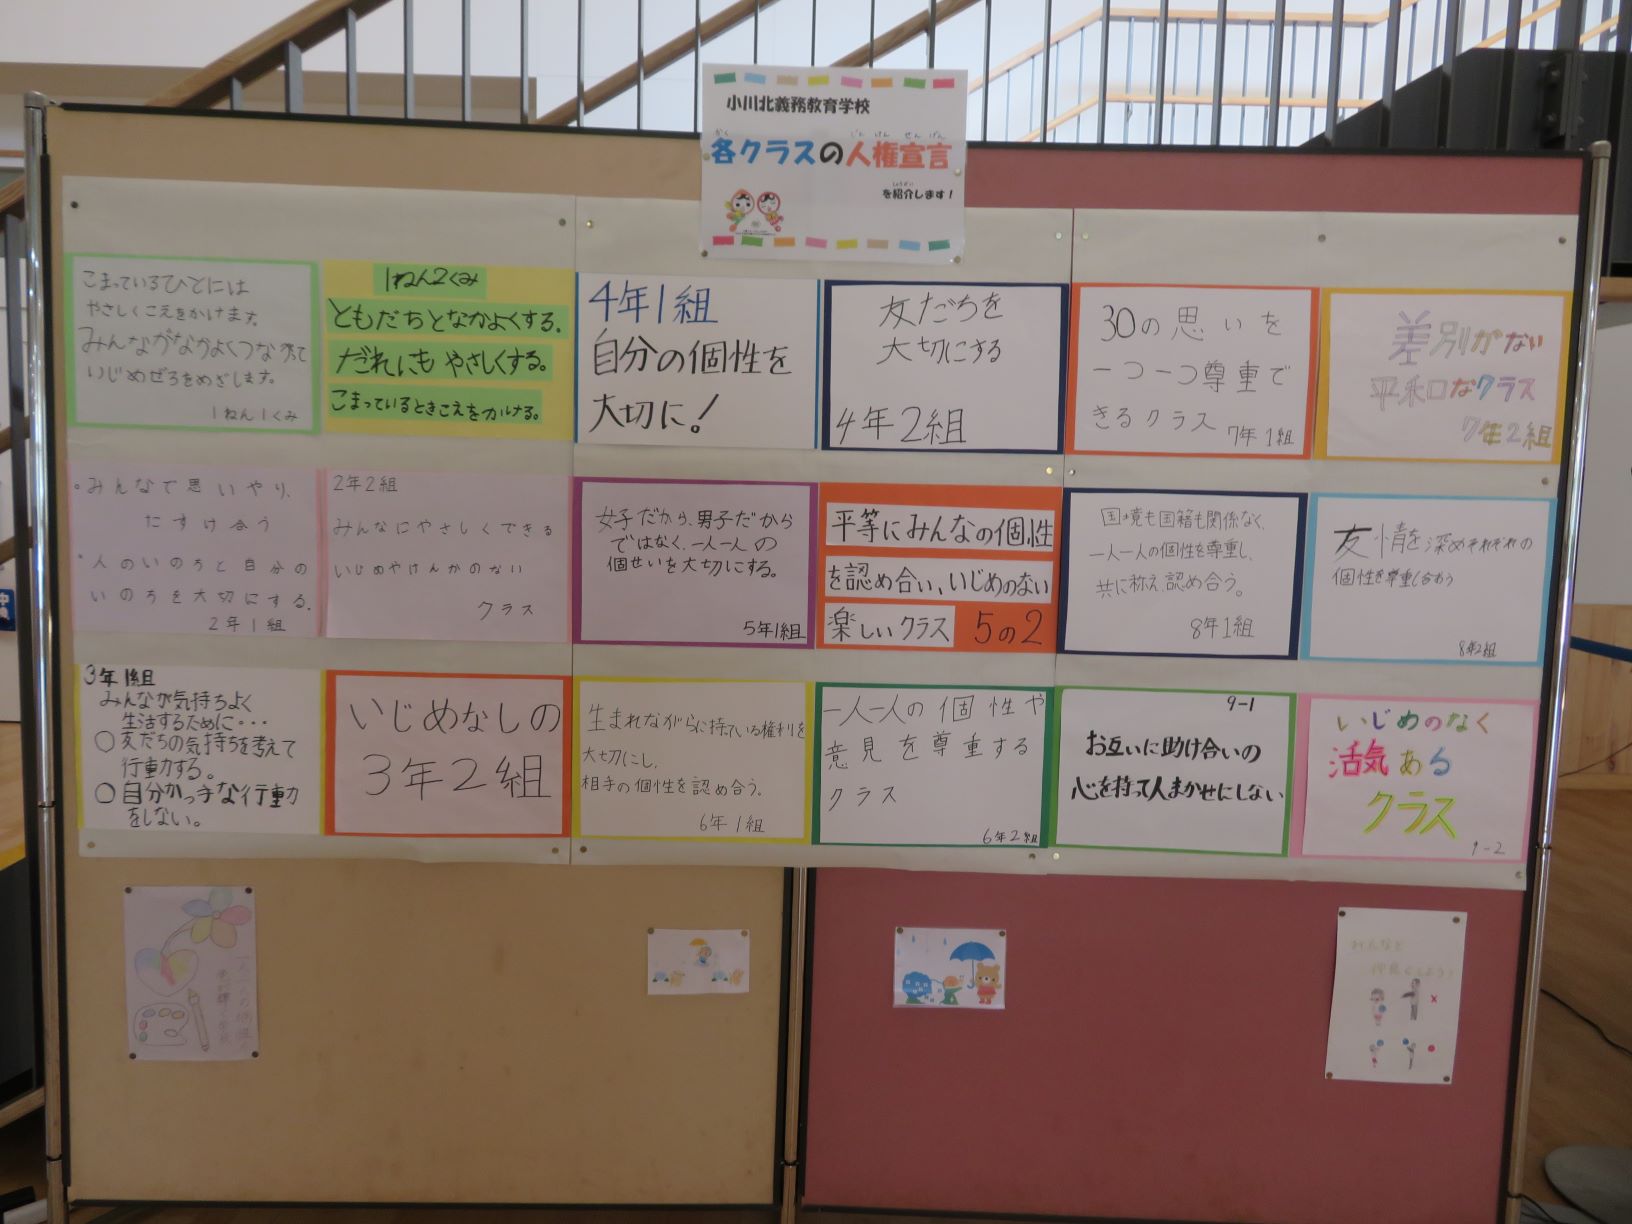 小川北義務教育学校
各クラスの人権宣言
を紹介します!
こまっているひとには
やさしくこえをかけます。
みんながなかよくつながって
いじめぜろをめざします。
1ねん1くみ
1ねん2くみ
ともだちとなかよくする。
だれにもやさしくする。
こまっているときこえをかける。
4年1組
自分の個性を
大切に!
友だちを
大切にする
4年2組
30の思いを
一つ一つ尊重で
きるクラス
7年1組
差別がない
平和なクラス
7年2組
・みんなで思いやり、
たすけ合う
・人のいのちと自分の
いのちを大切にする。
2年1組
2年2組
みんなにやさしくできる
いじめやけんかのない
クラス
女子だから、男子だから
ではなく、一人一人の
個せいを大切にする。
5年1組
平等にみんなの個性
を認め合い、いじめのない
楽しいクラス 5の2
国境も国籍も関係なく、
一人一人の個性を尊重し、
共に称え認め合う。
8年1組
友情を深めそれぞれの
個性を尊重し合おう
8年2組
3年1組
みんなが気持ちよく
生活するために・・・
○友だちの気持ちを考えて
行動する。
○自分かっ手な行動
をしない。
いじめなしの
3年2組
生まれながらに持っている権利を
大切にし、
相手の個性を認め合う。
6年1組
一人一人の個性や
意見を尊重する
クラス
6年2組
9-1
お互いに助け合いの
心を持って人まかせにしない
いじめのなく
活気ある
クラス
9-2
みんなと
仲良くしよう!